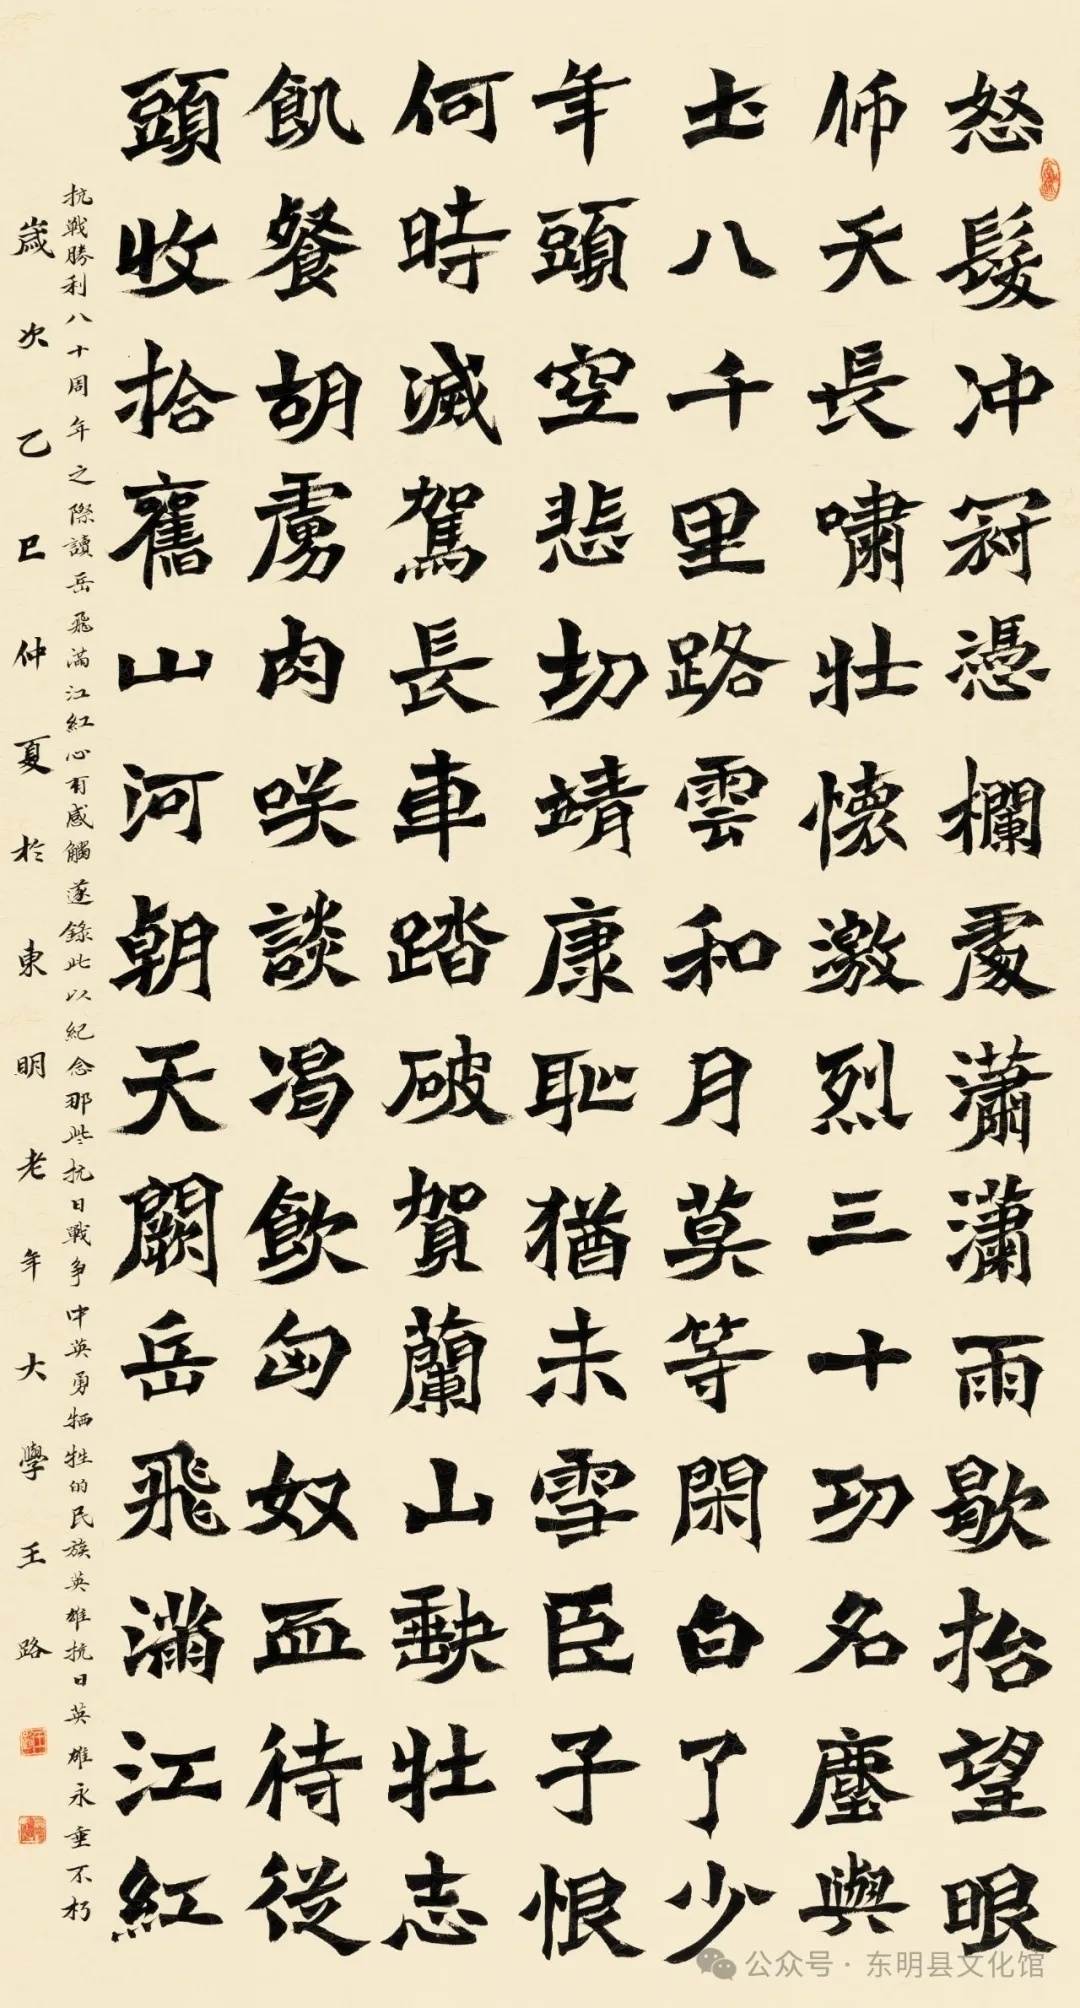 怒髮冲冠憑欄處瀟瀟雨歇抬望眼
仰天長嘯壯懷激烈三十功名塵與
土八千里路雲和月莫等閑白了少
年頭空悲切靖康恥猶未雪臣子恨
何時滅駕長車踏破賀蘭山缺壯志
飢餐胡虜肉咲談渴飲匈奴血待從
頭收拾舊山河朝天闕岳飛滿江紅
抗戰勝利八十周年之際讀岳飛滿江紅心有感觸遂錄此以紀念那些抗日戰爭中英勇牺牲的民族英雄抗日英雄永垂不朽
歲次乙巳仲夏於東明老年大學王路
公众号·东明县文化馆